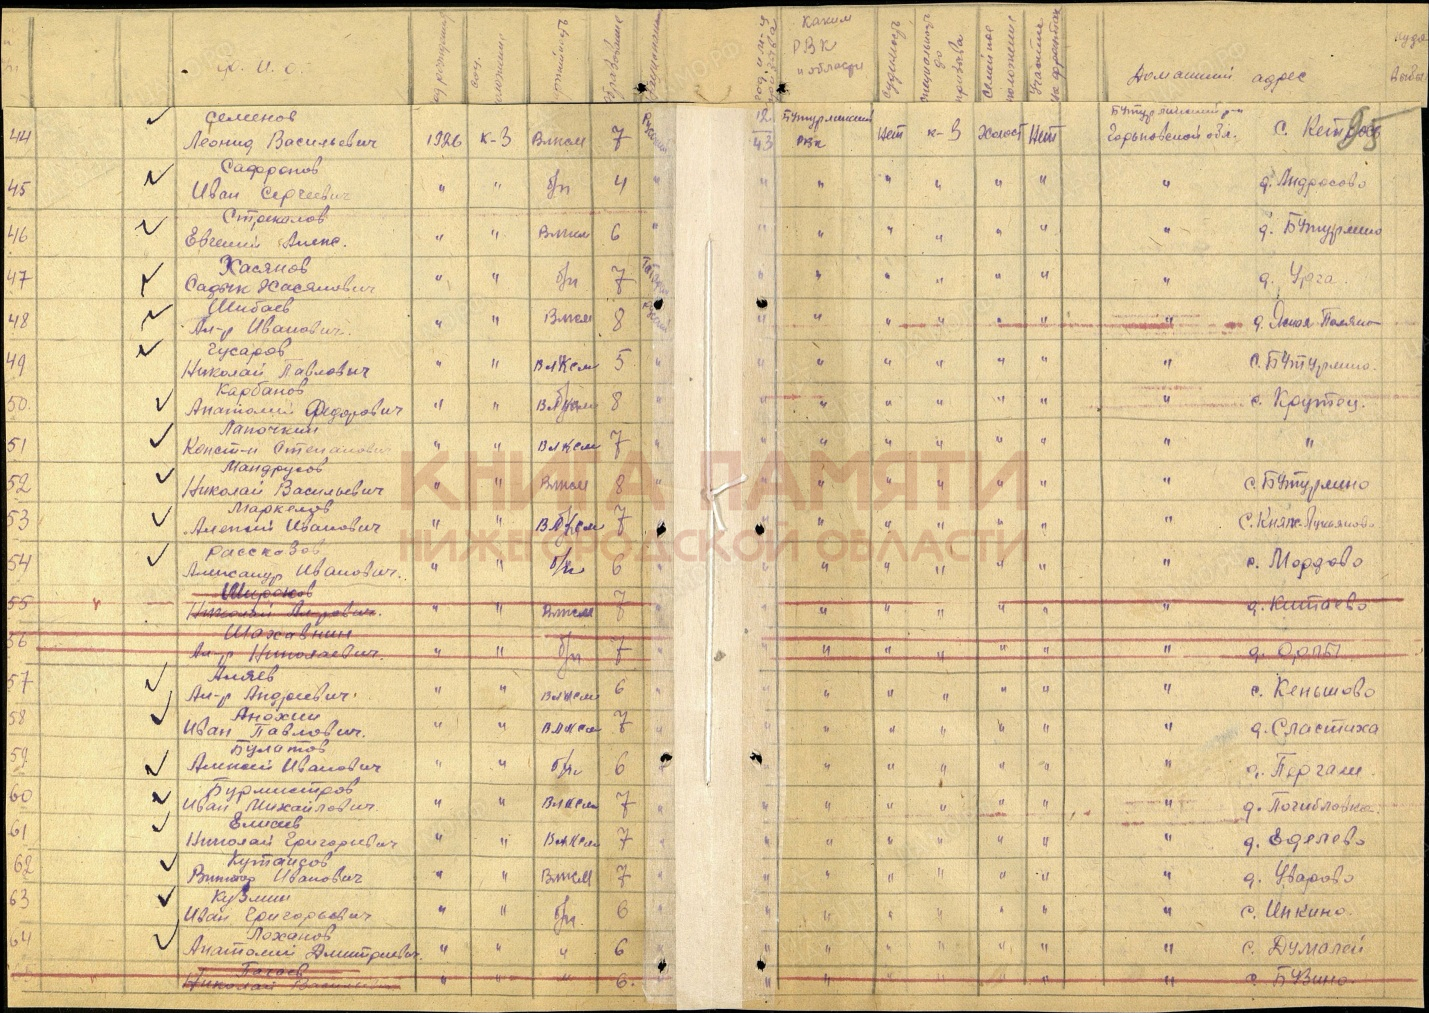 Ф. И. О. год рождения соц. положение партийность образование национальн. год, м-ц призыва Каким РВК и области судимость специальность до призыва Семейное положение Участие на фронтах Домашний адрес куда выбыл
95
44 Семенов Леонид Васильевич 1926 к-з Влксм 7 Русский 12/43 Бутурлинский РВК Нет к-з Холост Нет Бутурлинский р-н Горьковской обл. с.
45 Сафронов Иван Сергеевич " " б/п 4 " " " " " " " " д. Андросово
46 Стрекалов Евгений Алекс. " " Влксм 6 " " " " " " " " д. Бутурлино
47 Хасянов Садык Хасянович " " б/п 7 Татарин " " " " " " " д. Урга
48 Шибаев Ал-р Иванович " " Влксм 8 Русский " " " " " " " д. Ясная Поляна
49 Гусаров Николай Павлович " " ВлКсм 5 " " " " " " " " с. Бутурлино.
50. Карбанов Анатолий Федорович " " 8 " " " " " " " " с. Крутец.
51 Лапочкин Конст-н Степанович " " ВлКсм 7 " " " " " " " " "
52 Мандрусов Николай Васильевич " " Влксм 8 " " " " " " " " с. Бутурлино
53 Маркелов Алексей Иванович " " ВлКсм 7 " " " " " " " " с. Княж-Лукьяново
54 Рассказов Александр Иванович. " " б/п 6 " " " " " " " " с. Мордово
55 Широков Николай " " Влксм 7 " " " " " " " " д. Китаево
56 Шахавнин Ал-р Николаевич. " " б/п 7 " " " " " " " " д.
57 Аляев Ал-р Андреевич. " " Влксм 6 " " " " " " " " с. Кеньшово
58 Анохин Иван Павлович. " " Влксм 7 " " " " " " " " д. Сластиха
59 Булатов Алексей Иванович " " б/п 6 " " " " " " " " д. Пергалей.
60 Бурмистров Иван Михайлович. " " Влксм 7 " " " " " " " " д. Погибловка.
61 Елисеев Николай Григорьевич " " ВлКсм 7 " " " " " " " " д. Еделево
62 Кутаисов Виктор Иванович " " Влксм 7 " " " " " " " " д. Уварово
63 Кузмин Иван Григорьевич " " б/п 6 " " " " " " " " с. Инкино.
64 Лоханов Анатолий Дмитриевич. " " " 6 " " " " " " " " с. Думалей
Николай " " " 6. " " " " " " " " с. Бузино.
КНИГА ПАМЯТИ
НИЖЕГОРОДСКОЙ ОБЛАСТИ